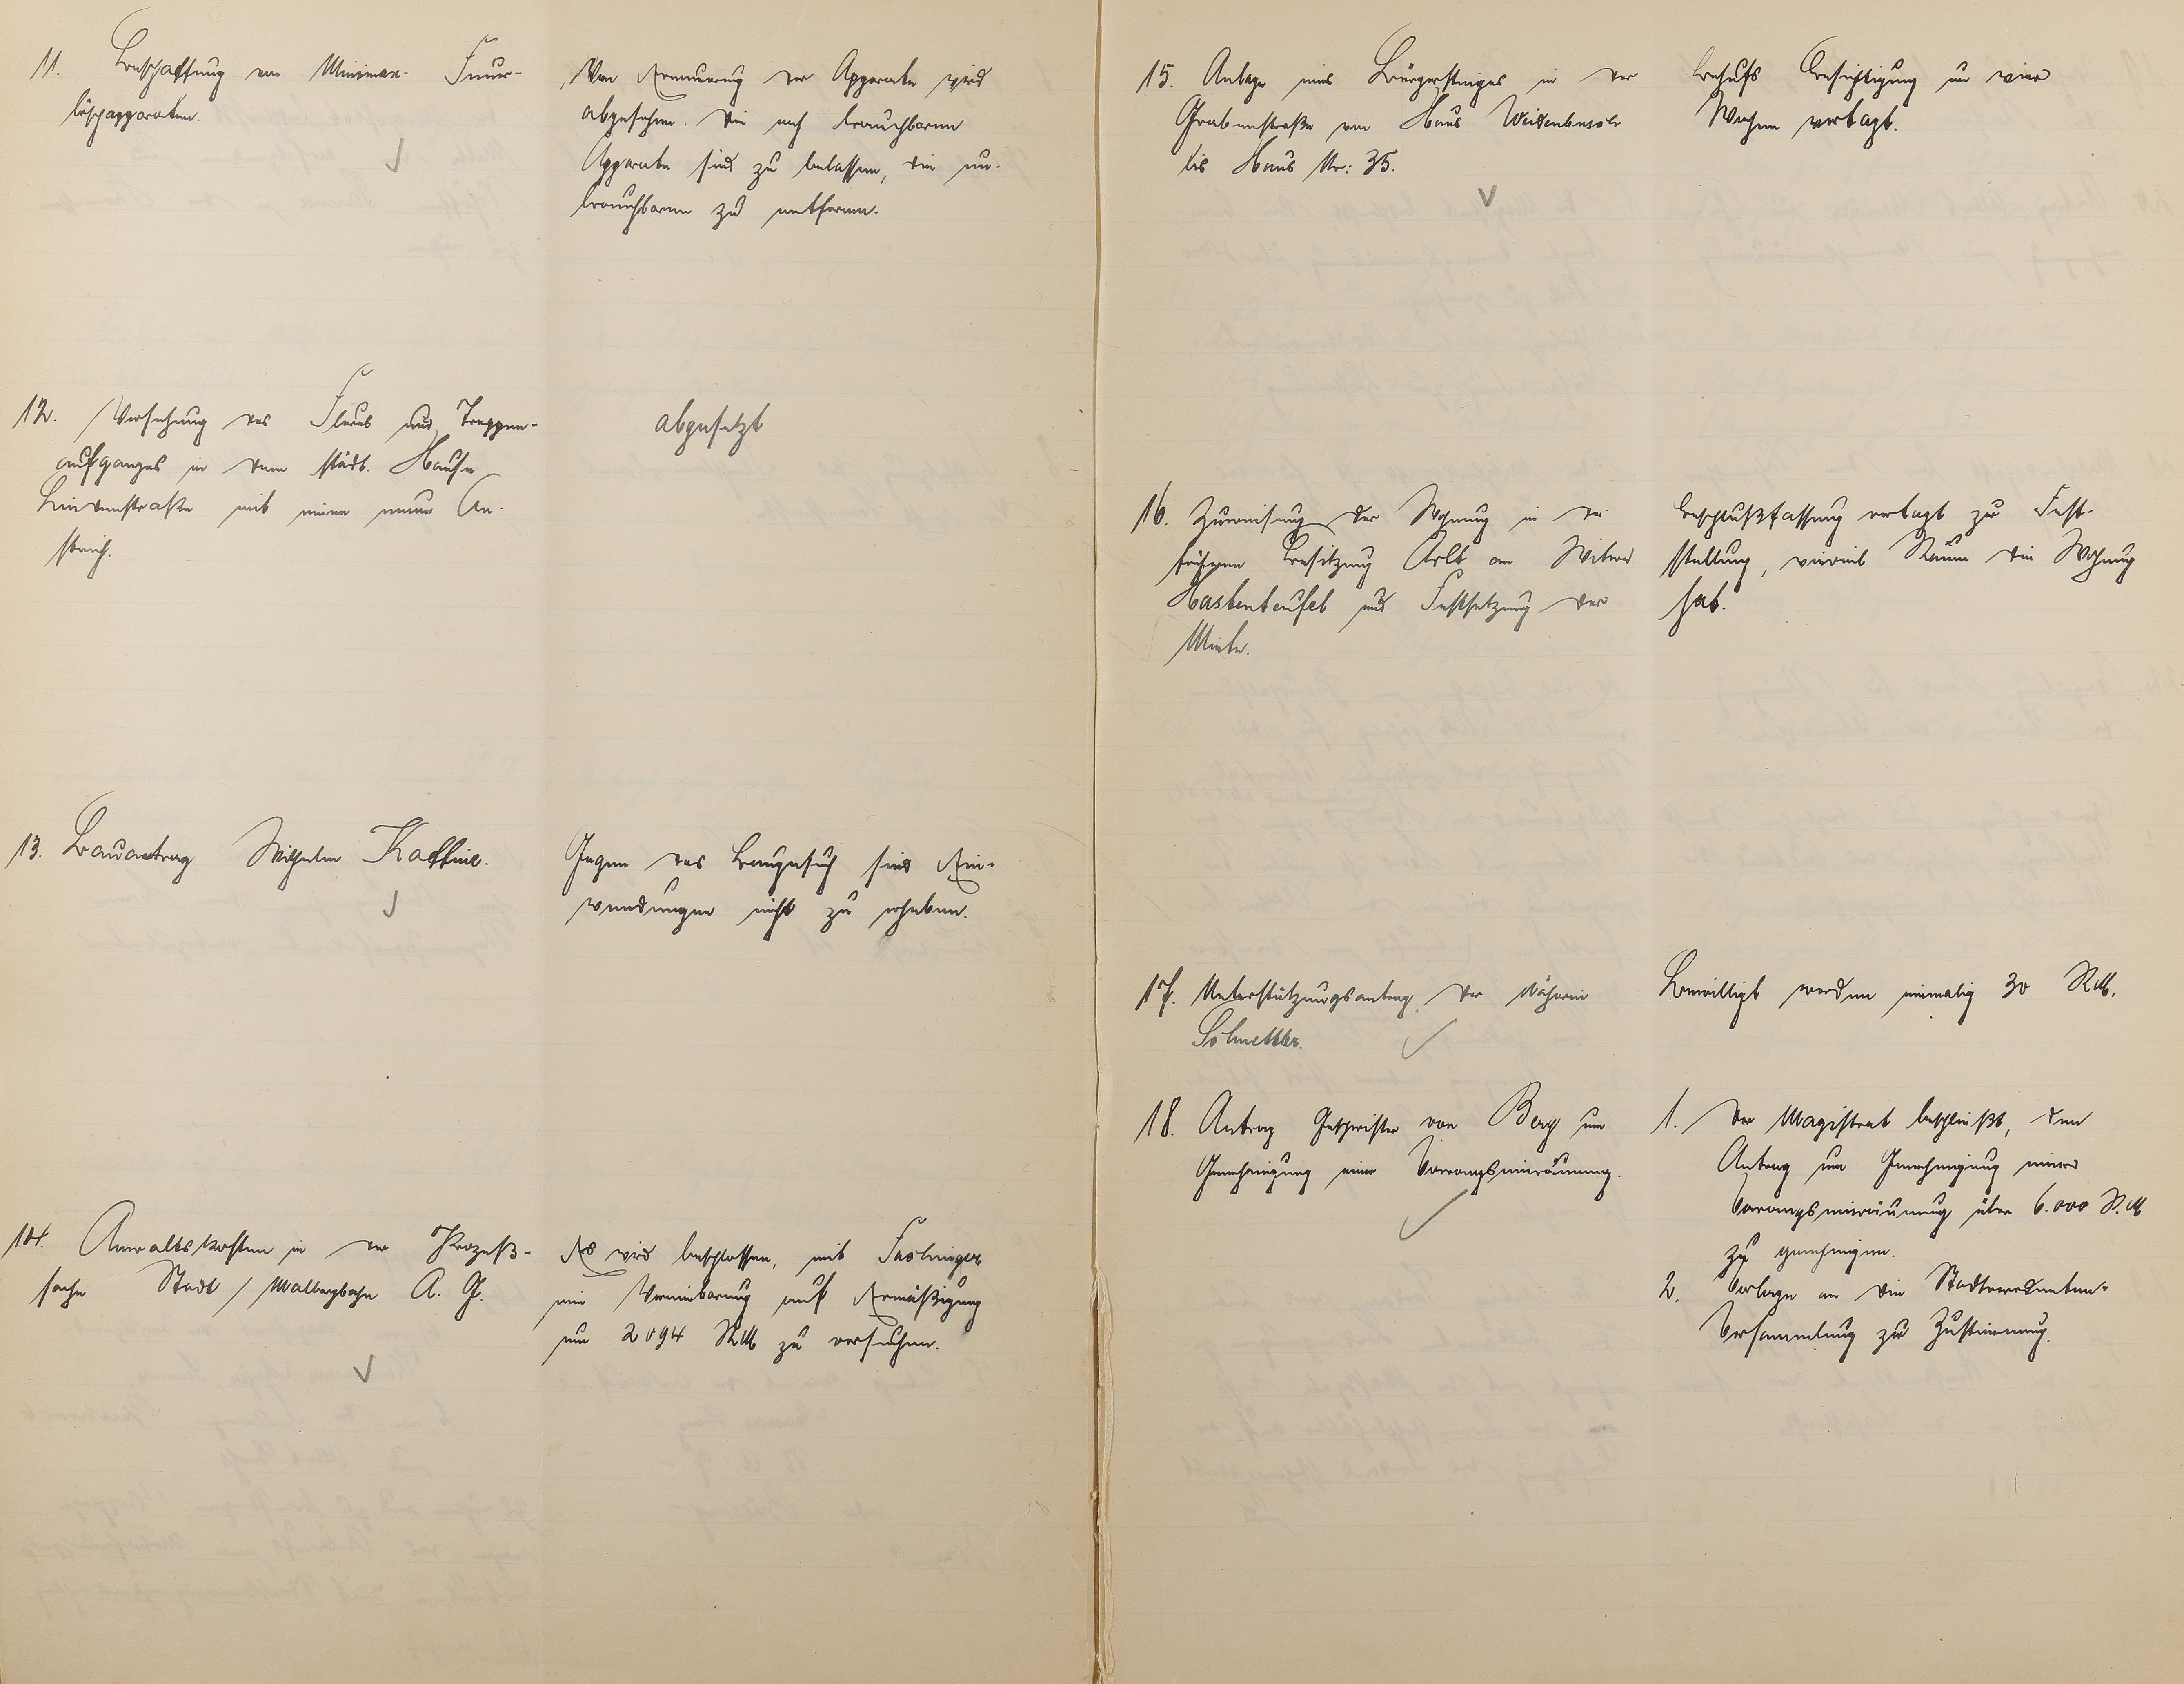 11. Beschaffung von Minimax-Feuer-
löschapparaten.
Von Erneuerung der Apparate wird
abgesehen. Die noch brauchbaren
Apparate sind zu belassen, die un-
brauchbaren zu entfernen.
12. Versehung des Flures und Treppen-
aufganges in dem städt. Hause
Lindenstraße mit einem neuen An-
strich.
abgesetzt
13. Bauantrag Wilhelm
Gegen das Baugesuch sind Ein-
wendungen nicht zu erheben.
14. Anwaltskosten in der Prozeß-
sache Stadt / Malbergbahn A. G.
Es wird beschlossen, mit
eine Vereinbarung auf Ermäßigung
um 2094 RM zu versuchen.
15. Anlage eines Bürgersteiges in der
Grabenstraße von Haus
bis Haus Nr: 35.
behufs Besichtigung um vier
Wochen vertagt.
16. Zuweisung der Wohnung in der
früheren Besitzung Arlt an Witwe
Hastenteufel und Festsetzung der
Miete.
Beschlußfassung vertagt zur Fest-
stellung, wieviel Räume die Wohnung
hat.
17. Unterstützungsantrag der Näherin
Bewilligt werden einmalig 30 RM.
18. Antrag Geschwister von Berg um
Genehmigung einer Vorrangseinräumung.
1. Der Magistrat beschließt, den
Antrag um Genehmigung einer
Vorrangseinräumung über 6.000 RM
zu genehmigen.
2. Vorlage an die Stadtverordneten-
Versammlung zur Zustimmung.